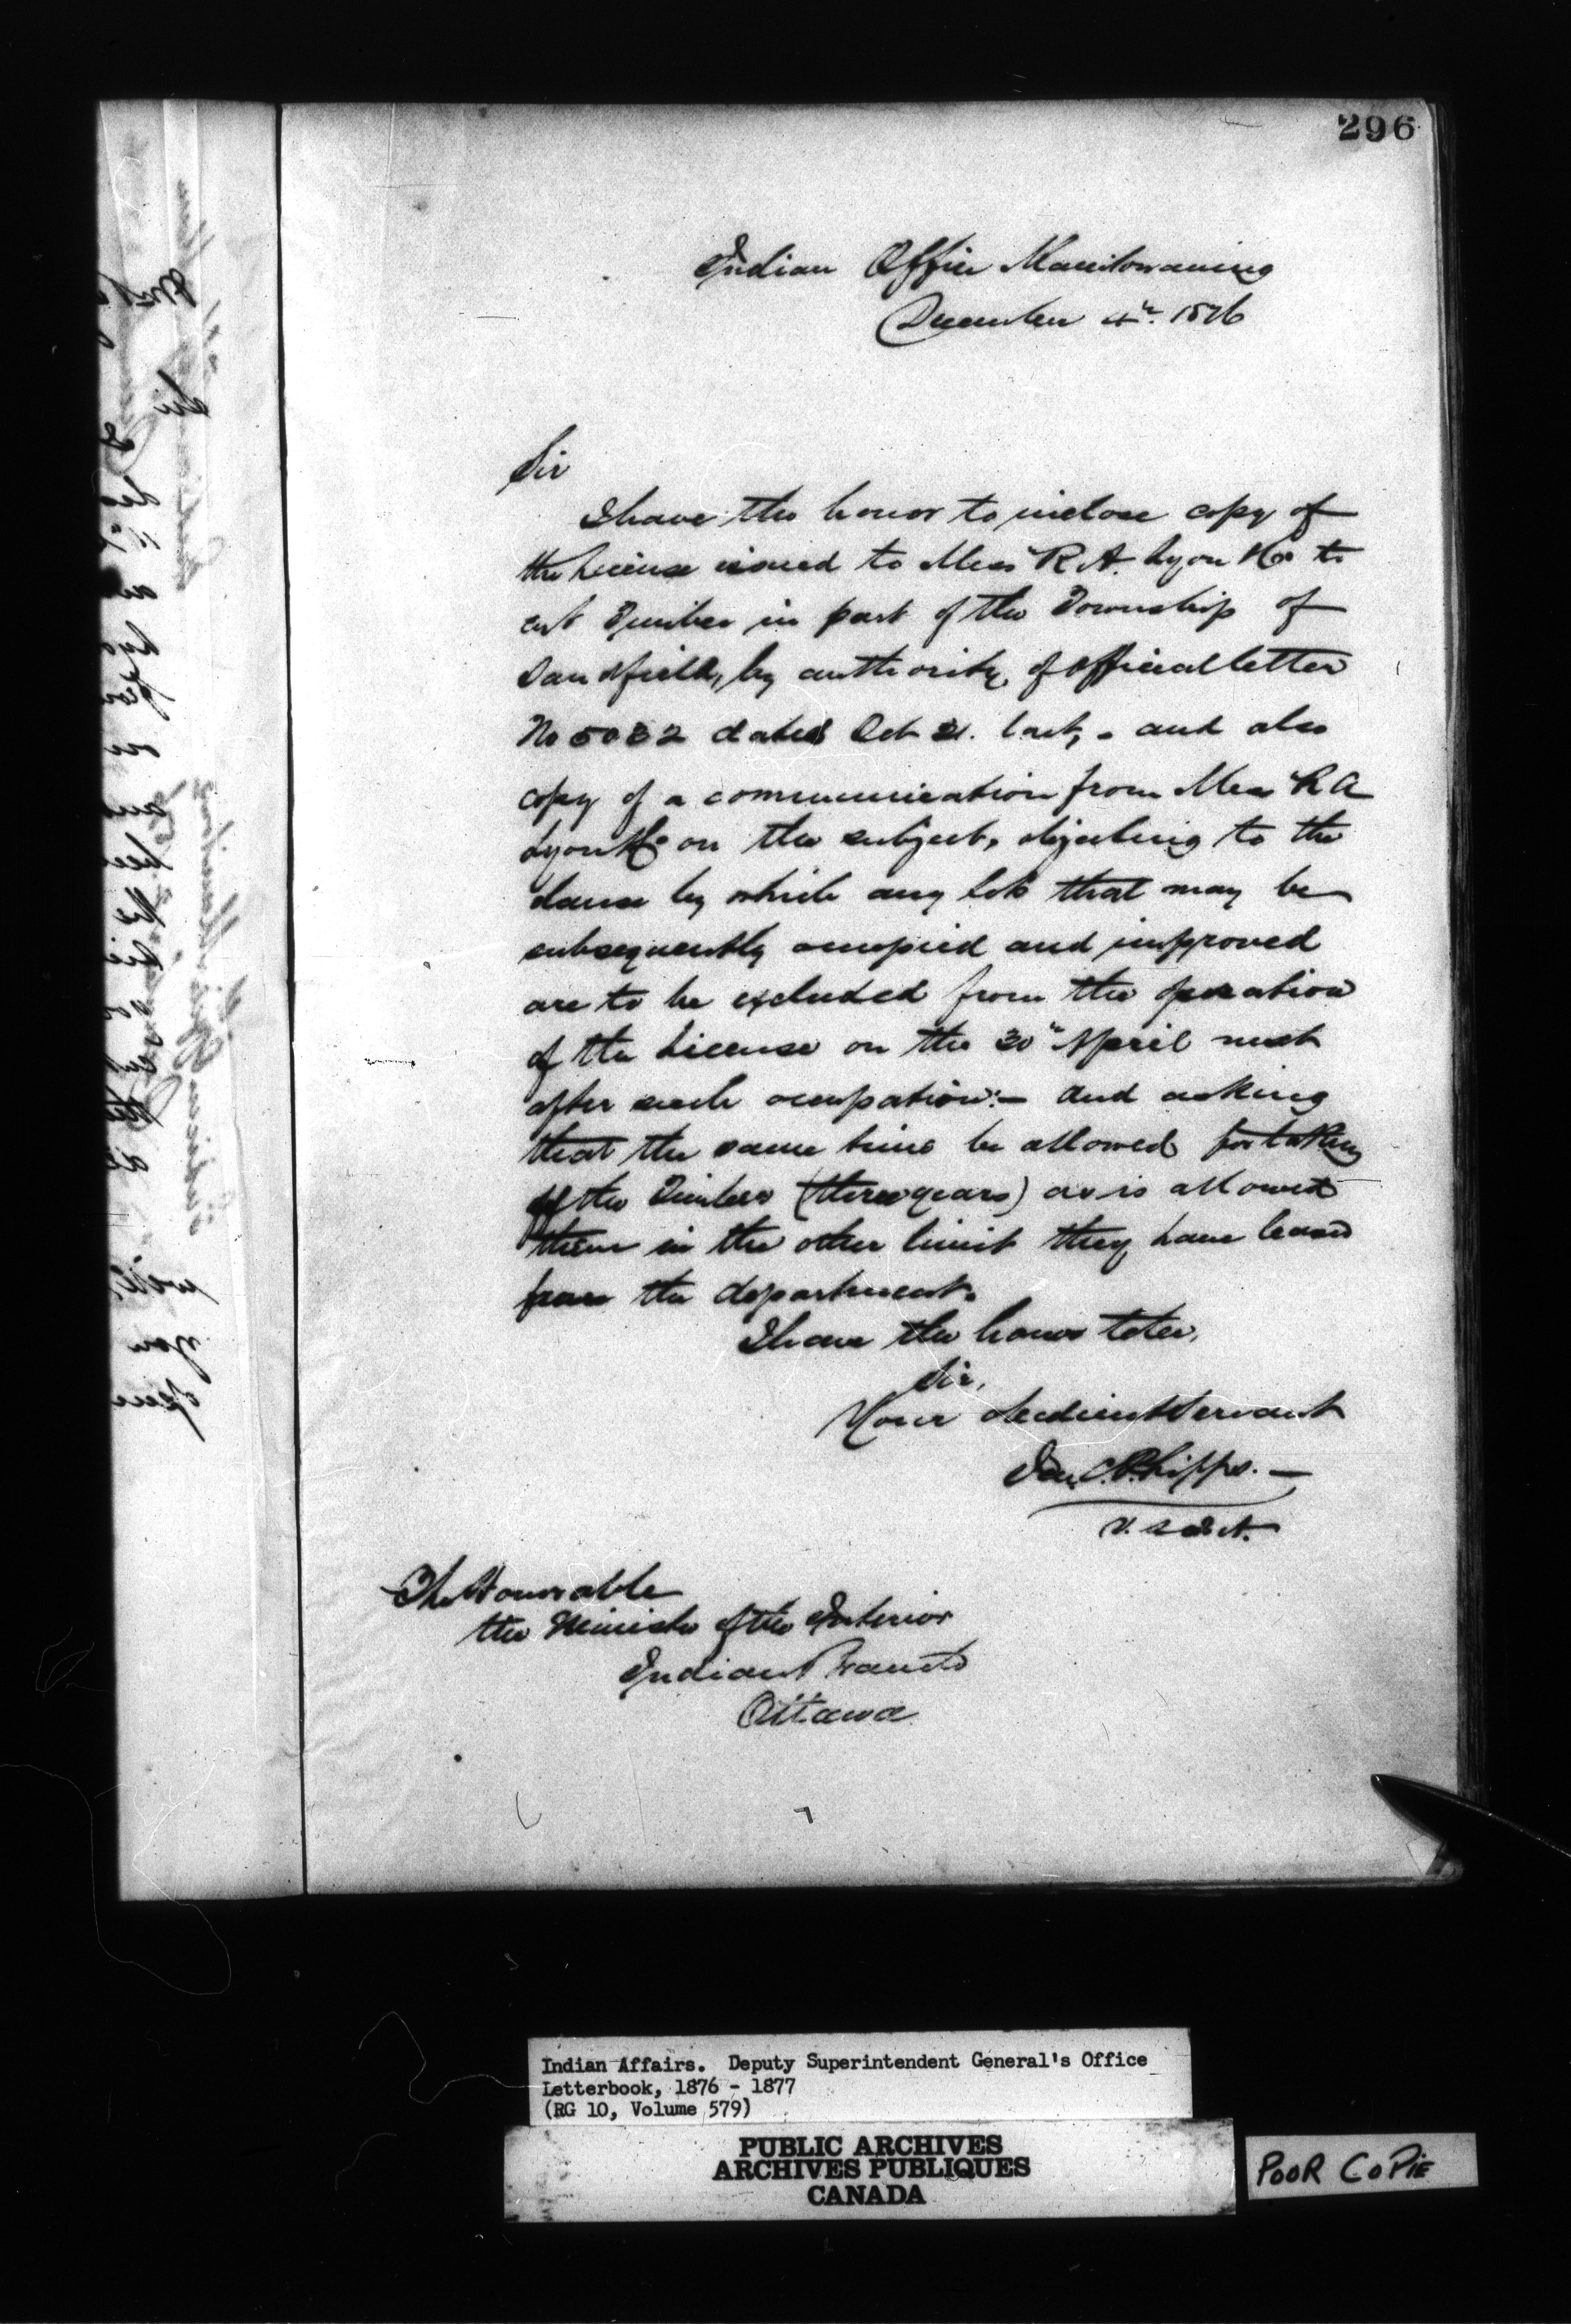 296
Indian Office Manitowaning
December 4th. 1876
Sir
I have the honor to inclose copy of
the License issued to Mess R.A. Lyon & Co to
cut Timber in part of the Township of
Sandfield, by authority of official letter
No 5082 dated Oct 21. last, - and also
copy of a communication from Mess R A
Lyon & Co on the subject, objecting to the
clause by which any lots that may be
subsequently occupied and improved
are to be excluded from the operation
of the License on the 30th April next
after such occupation: - and asking
that the same time be allowed for taking
off the Timber (three years) as is allowed
them in the other limit they have leased
from the department.
I have the honor to be,
Sir,
Your obedient Servant
Jas. C. Phipps. -
V. S. I. A.
The Honorable
the Minister of the Interior
Indian Branch
Ottawa
Indian Affairs. Deputy Superintendent General's Office
Letterbook, 1876 - 1877
(RG 10, Volume 579)
PUBLIC ARCHIVES
ARCHIVES PUBLIQUES
CANADA
POOR COPIE